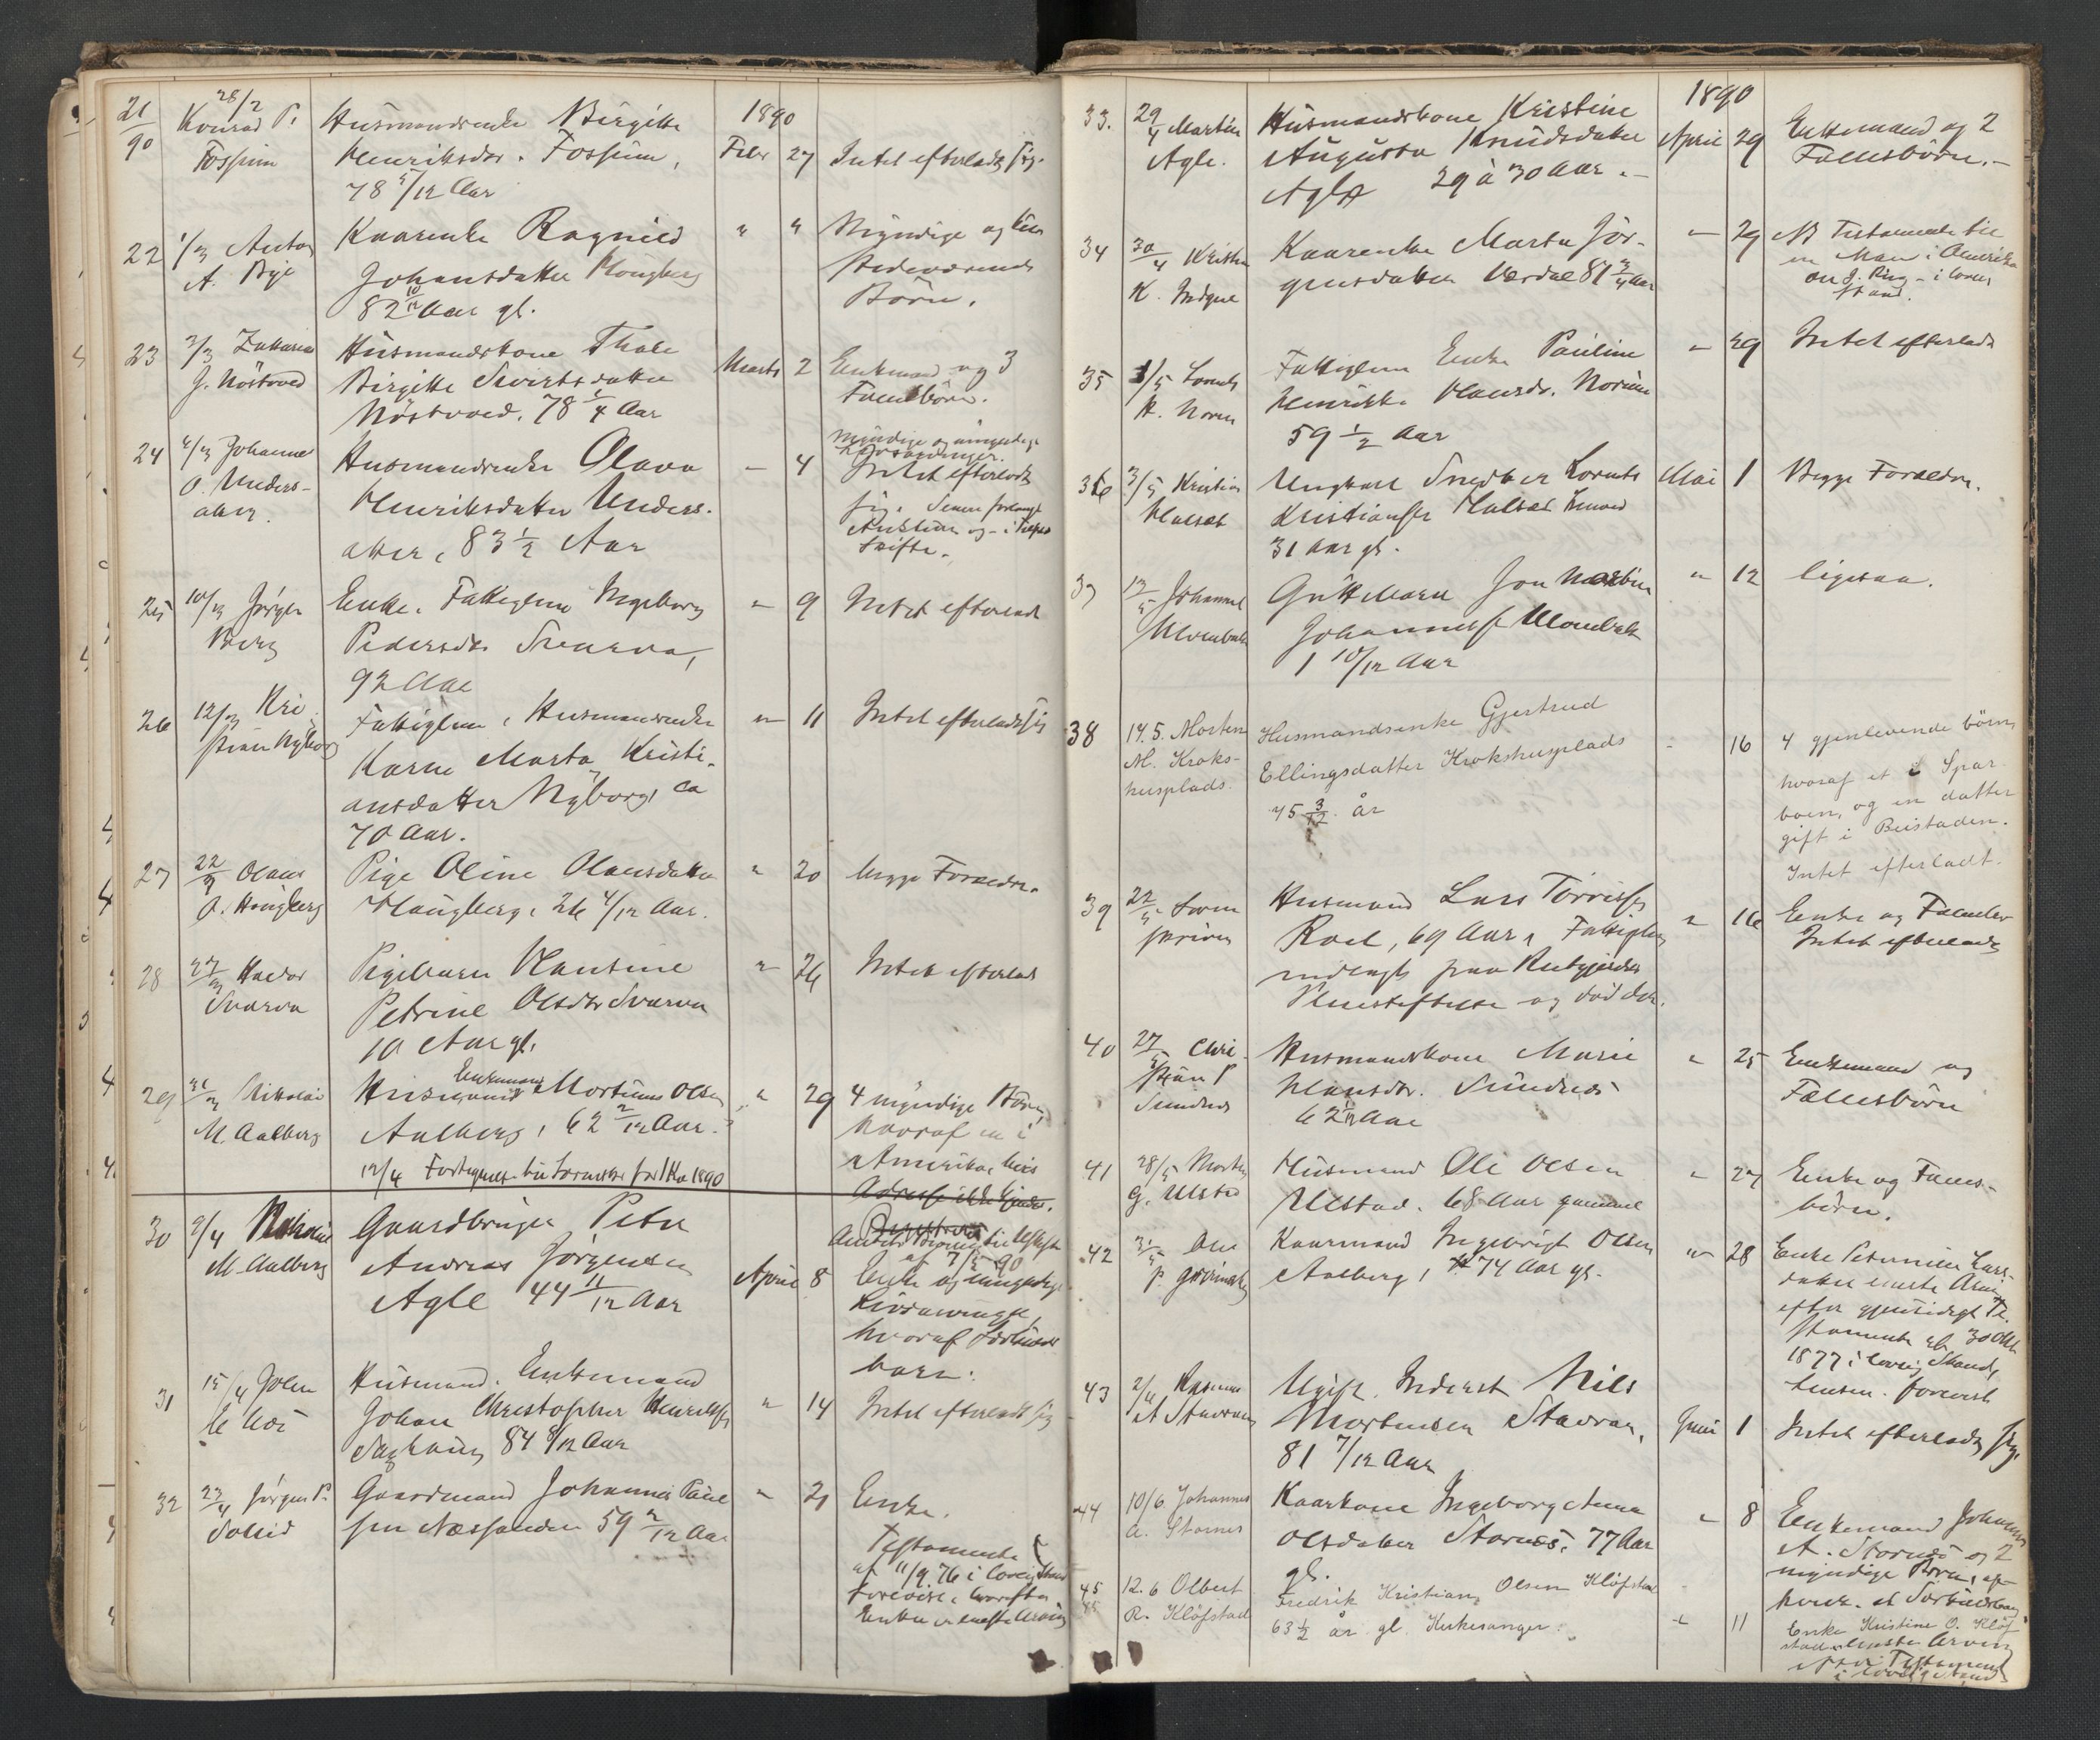 21/90 28/2 Konrad P. Fossum
Husmandsenke Birgitte
Henriksdtr. Fossum,
78 5/12 Aar
1890
Febr 27
Intet efterladt sig.
22 1/3 Anton
A. Bye
Kaarenke Ragnild
Johansdatter Hougberg
82 10/12 Aar gl.
" "
Myndige og
tilstedeværende
Börn.
23 3/3 Zakarias
J. Nöstvoed
Husmandskone Thale
Birgitte Sivertsdatter
Nöstvoed. 78 1/4 Aar
Marts 2
Enkemand og 3
Fællesbörn.
24 4/3 Johannes
O. Unders-
aker.
Husmandsenke Olava
Henriksdatter Unders-
aker, 83 1/2 Aar
— 4
Myndige og umyndige
Livsarvinger.
Intet efterladt
sig. Senere forlangt
Auktion og
Skifte.
25 10/3 Jörgen
Berg
Enke, Fattiglem Ingeborg
Pedersdtr Svarva,
92 Aar
" 9
Intet efterladt
26 12/3 Kri-
stian Nyborg
Fattiglem, Husmandsenke
Karen Marta Kristi-
ansdatter Nyborg, ca
70 Aar.
" 11
Intet efterladt sig
27 22/3 Olaus
A. Hougberg
Pige Oline Olausdatter
Hougberg, 26 4/12 Aar.
" 20
begge Forældre.
28 27/3 Haldor
Svarva
Pigebarn Hansine
Petrine Olsdtr Svarva
10 Aar gl.
" 26
Intet efterladt
29 31/3 Nikolai
M. Aalberg
Husmand Enkemand Mortinus Olsen
Aalberg, 62 2/12 Aar.
" 29
4 myndige Börn,
hvoraf en i
Amerika, hvis
Adresse ikke kjendes.
12/4 Fortegnelse til Sorenskr. for 1 Kv 1890
30 9/4 Nikolai
M. Aalberg
Gaardbruger Peter
Andreas Jörgensen
Agle 44 11/12 Aar
April 8
Enke og umyndige
Livsarvinger,
hvoraf Særkuldsbarn.
31 15/4 Johan
Husmand. Enkemand
Johan Christopher Henriksen
Saghaug 84 8/12 Aar
" 14
Intet efterladt sig
32 23/4 Jörgen P.
Sollid
Gaardmand Johannes Paul-
sen Næssanden 59 2/12 Aar
" 21
Enke.
Testamente
af 11/9 76 i lovlig Stand
Forevist, hvorefter
Enken er eneste Arving
1890
33. 29/4 Martin
Agle.
Husmandskone Kristine
Augusta Knudsdatter
Agle 29 à 30 Aar. —
April 29
Enkemand og 2
Fællesbörn. —
34 30/4 Kristen
K.
Kaarenke Marta Jör-
gensdatter Verdal 87 3/4 Aar
— 29
NB Testamente til
en Mand i Amerika
i lovlig
Stand.
35 1/5 Lorents
H. Norum
Fattiglem Enke Pauline
Henrikke Hansdr. Norum
59 1/2 Aar
— 29
Intet efterladt
36 3/5 Kristian
Halsæt
Ungkarl Snedker Lorents
Kristiansen Halsæt
31 Aar gl.
Mai 1
Begge Forældre.
37 13/5 Johannes
Ulvenbak
Guttebarn Jon Martin
Johannessen
1 10/12 Aar
" 12
ligesaa.
38 14.5. Morten
M. Kroks-
husplads.
Husmandsenke Gjertrud
Ellingsdatter Krokshusplads
75 3/12 år
- 16
4 gjenlevende börn
hvoraf et i Spar-
boen, og en datter
gift i Beistaden.
Intet efterladt.
39 22/5
Husmand Lars Torrissen
Roel, 69 Aar, Fattiglem
indlagt paa Reitgjærdets
Pleiestiftelse og död der.
" 16
Enke og Fællesbr
Intet efterladt
40 27/5 Chri-
stian P.
Sundnes
Husmandskone Marie
Hansdr. Sundnes
62 1/12 Aar
" 25
Enkemand og
Fællesbörn
41 28/5 Morten
G. Ulstad
Husmand Ole Olsen
Ulstad. 68 Aar gammel
" 27
Enke og Fælles-
börn.
42 31/5 Ole
P.
Kaarmand Ingebrigt Olsen
Aalberg, 74 Aar gl.
" 28
Enke Peternille Lars-
datter eneste Arving
efter gjensidigt Te-
stamente af 30 Okt
1877 i lovlig Stand,
forevist
43 2/6 Rasmus
A Stavran
Ugift Inderst Nils
Mortensen Stavran,
81 7/12 Aar
Juni 1
Intet efterladt sig.
44 10/6 Johannes
A. Stornes
Kaarkone Ingeborg Anna
Olsdatter Stornes. 77 Aar
gl.
" 8
Enkemand Johannes
A. Stornes og 2
myndige Börn, af
hvilke et Særkuldsbarn
45 12.6 Olbert
R. Klöfstad
Fredrik Kristian Olsen Klöfstad
63 1/2 år gl. Kirkesanger.
" 11
Enke Kristine O. Klöf-
stad eneste Arving
efter Testament
i lovlig Stand